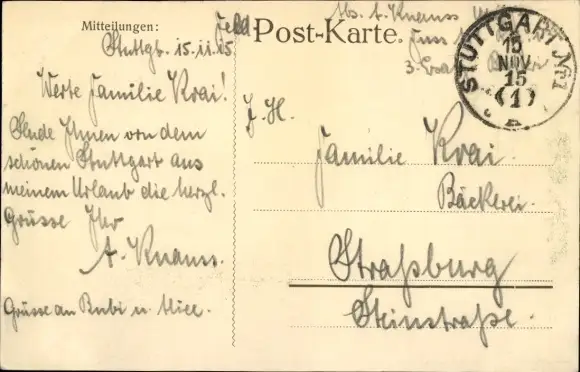 Mitteilungen:
Stuttgb. 15.11.15
Werte Familie Krai!
Sende Ihnen von dem
schönen Stuttgart aus
meinem Urlaub die herzl.
Grüsse Ihr
A. Knauss.
Grüsse an Bubi u. Alice.
Feld
Post-Karte.
Abs. A. Knauss
3. Ersatz
STUTTGART Nr. 1
15
NOV
15
(1)
F. H.
Familie Krai.
Bäckerei.
Straßburg
Steinstraße.